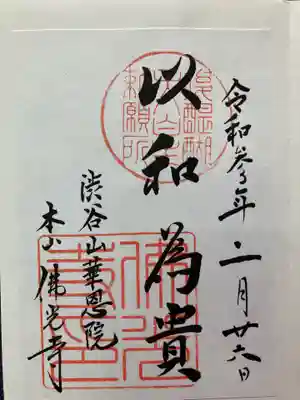 令和参年二月廿六日
以和為貴
渋谷山華恩院
本山佛光寺